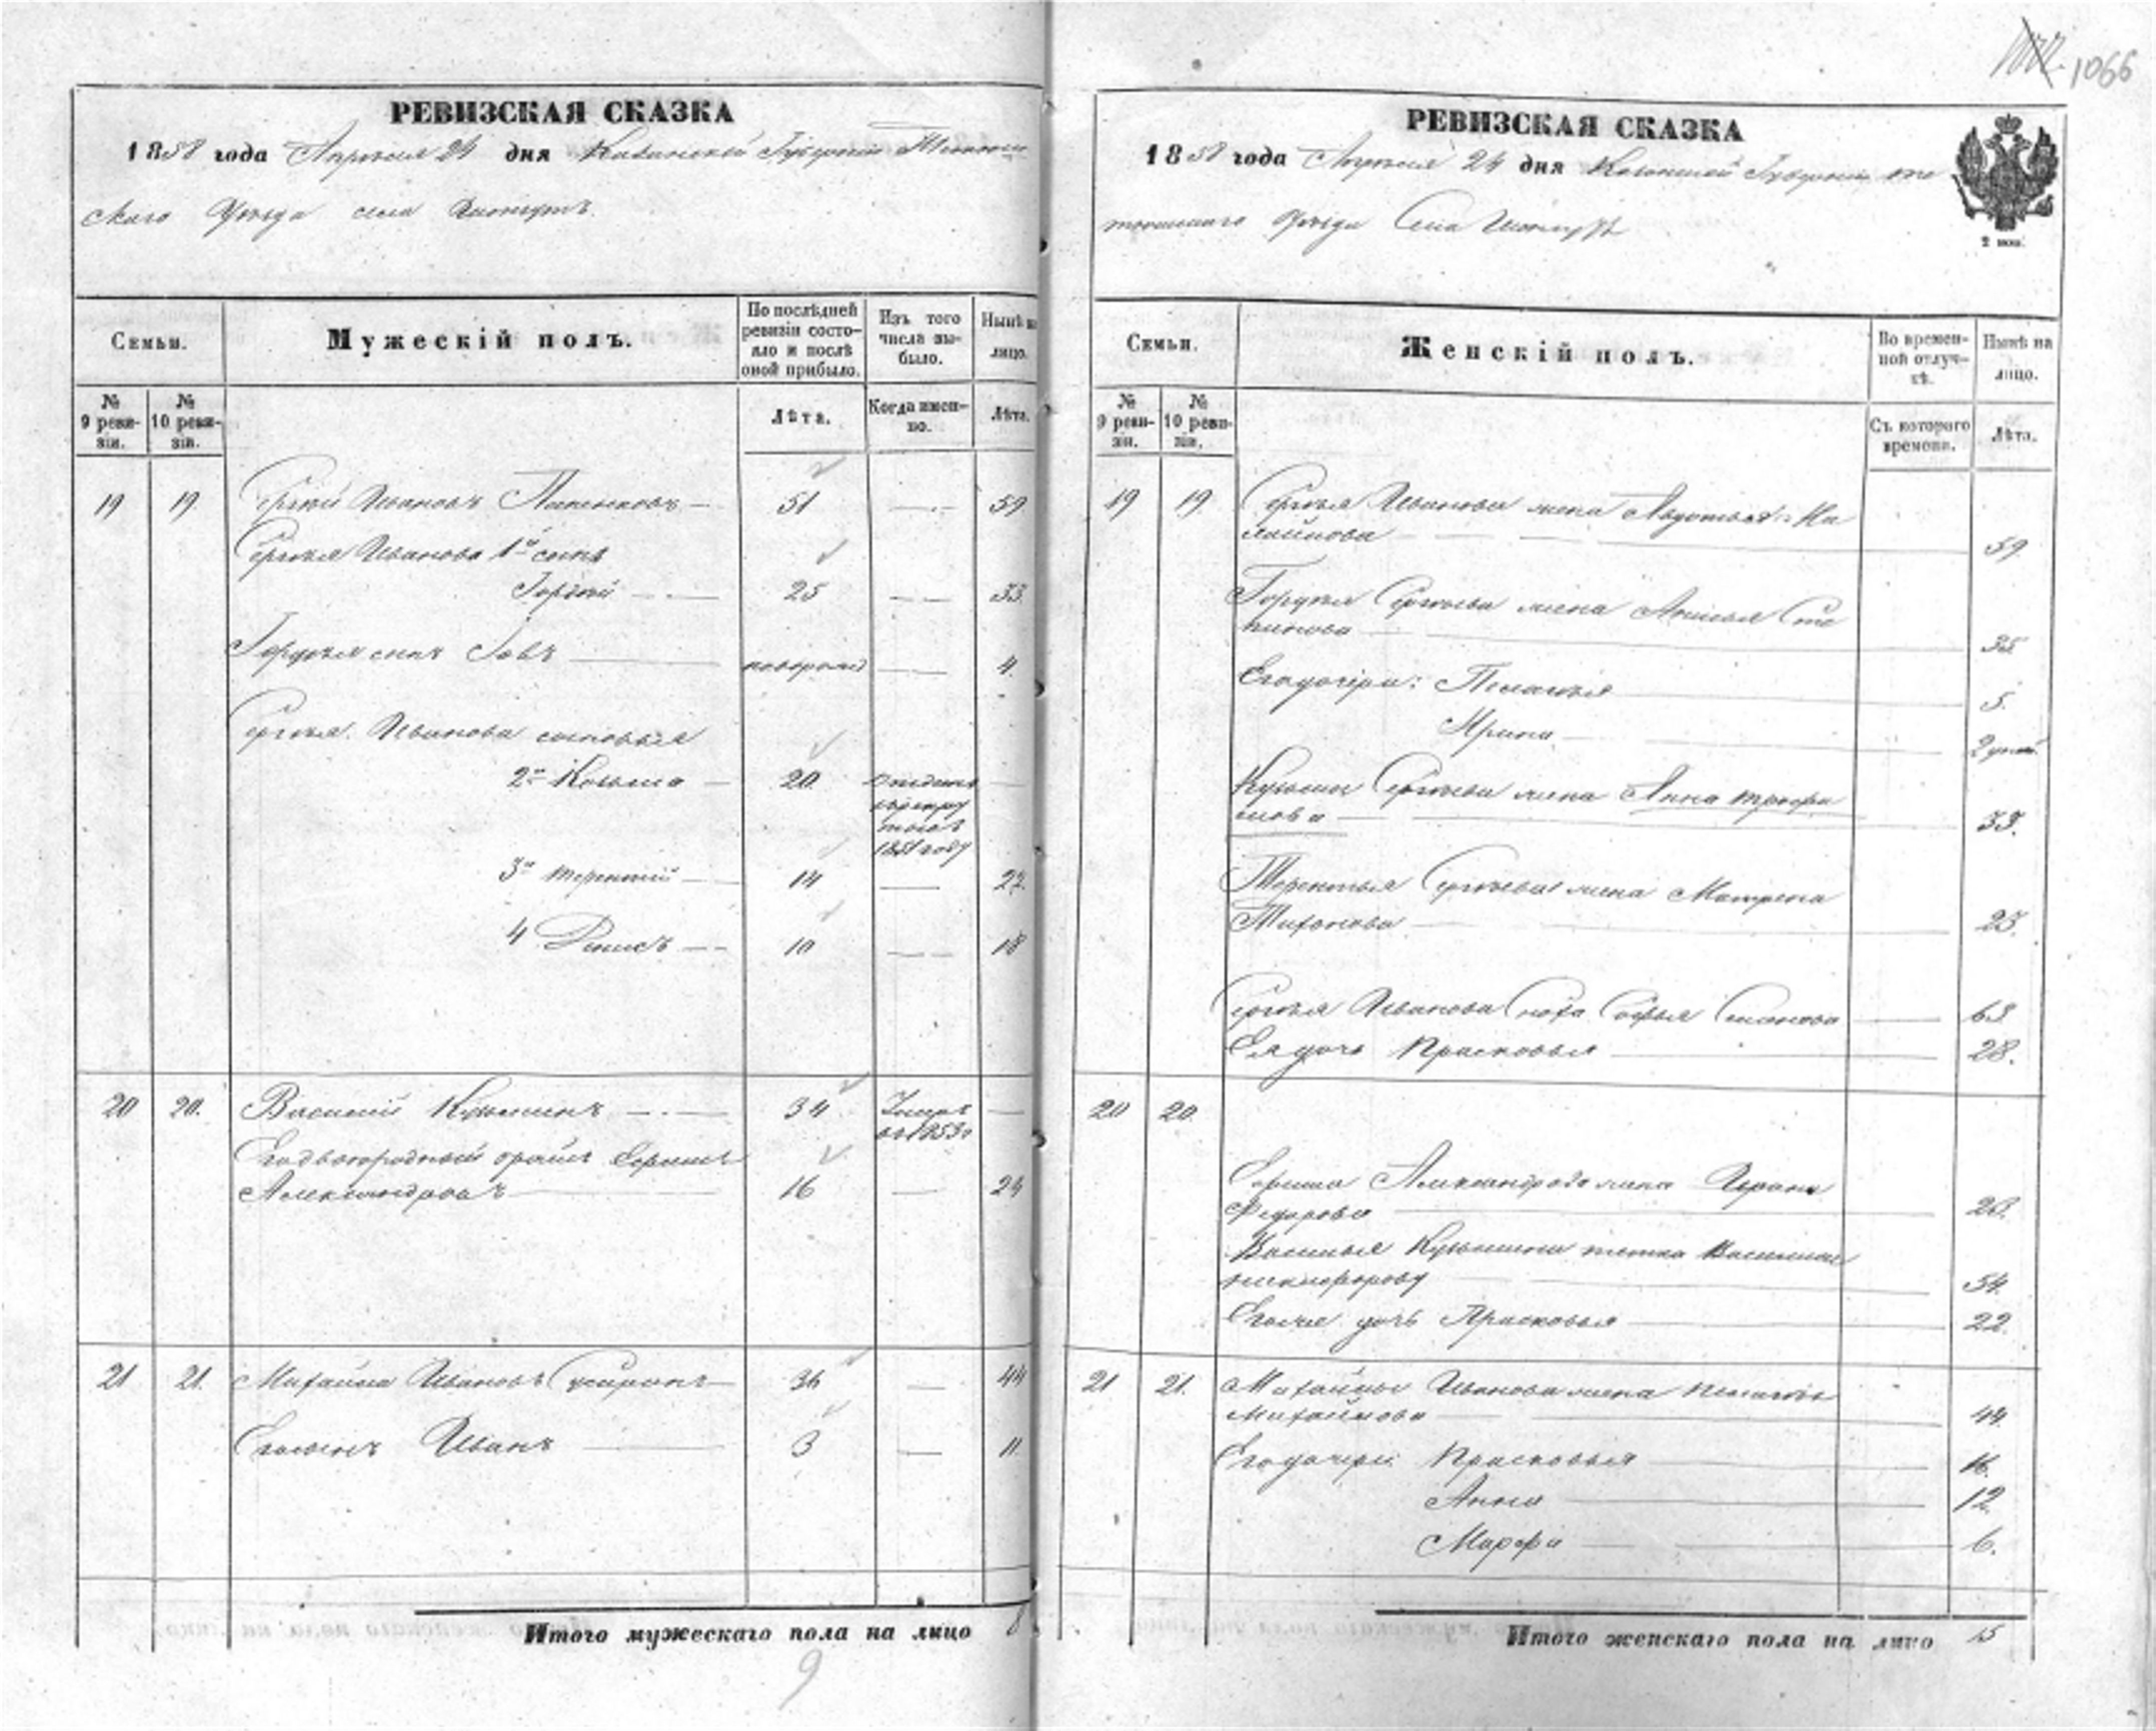 1066
РЕВИЗСКАЯ СКАЗКА
1858 года Апреля 24 дня Казанской Губернiи
скаго Уѣзда села
Семьи.
Мужескій полъ.
По послѣдней ревизіи состояло и послѣ оной прибыло.
Изъ того числа выбыло.
Нынѣ на лицо.
№ 9 ревизіи.
№ 10 ревизіи.
Лѣта.
Когда именно.
Лѣта.
19 19 Сергѣй Ивановъ 51 59
Сергѣя Иванова 1й сынъ
Гордѣй 25 33
Гордѣя сынъ Іовъ новорожд 4
Сергѣя Иванова сыновья
2й Козьма 20 1851 году
3й Терентий 14 22
4 Денисъ 10 18
20 20. Василий Кузьминъ 34 Умеръ въ 1853г
Его двоюродный братъ
Александровъ 16 24
21 21. Михайла Ивановъ 36 44
Его сынъ Иванъ 3 11
Итого мужескаго пола на лицо 8
9
РЕВИЗСКАЯ СКАЗКА
1858 года Апреля 24 дня Казанской Губернiи
Уѣзда Села
2 коп.
Семьи.
Женскій полъ.
Во временной отлучкѣ.
Нынѣ на лицо.
№ 9 ревизіи.
№ 10 ревизіи.
Съ котораго времени.
Лѣта.
19 19. Сергѣя Иванова жена Авдотья
59
Гордѣя Сергѣева жена Анисья Сте
панова 35
Его дочери: Пелагѣя 5.
Ирина
Кузьмы Сергѣева жена Анна Трофи
мова 33.
Терентья Сергѣева жена Матрена
Тихонова 23.
Сергѣя Иванова сноха Софья Семенова 63
Ея дочь Прасковья 28.
20 20.
Александрова жена
Федорова
Василья Кузьмина тетка Василиса
Никифорова 54.
дочь Прасковья 22.
21 21. Михайлы Иванова жена
Михайлова 44.
Его дочери: Прасковья 16.
Анна 12.
Марфа 6.
Итого женскаго пола на лицо 15